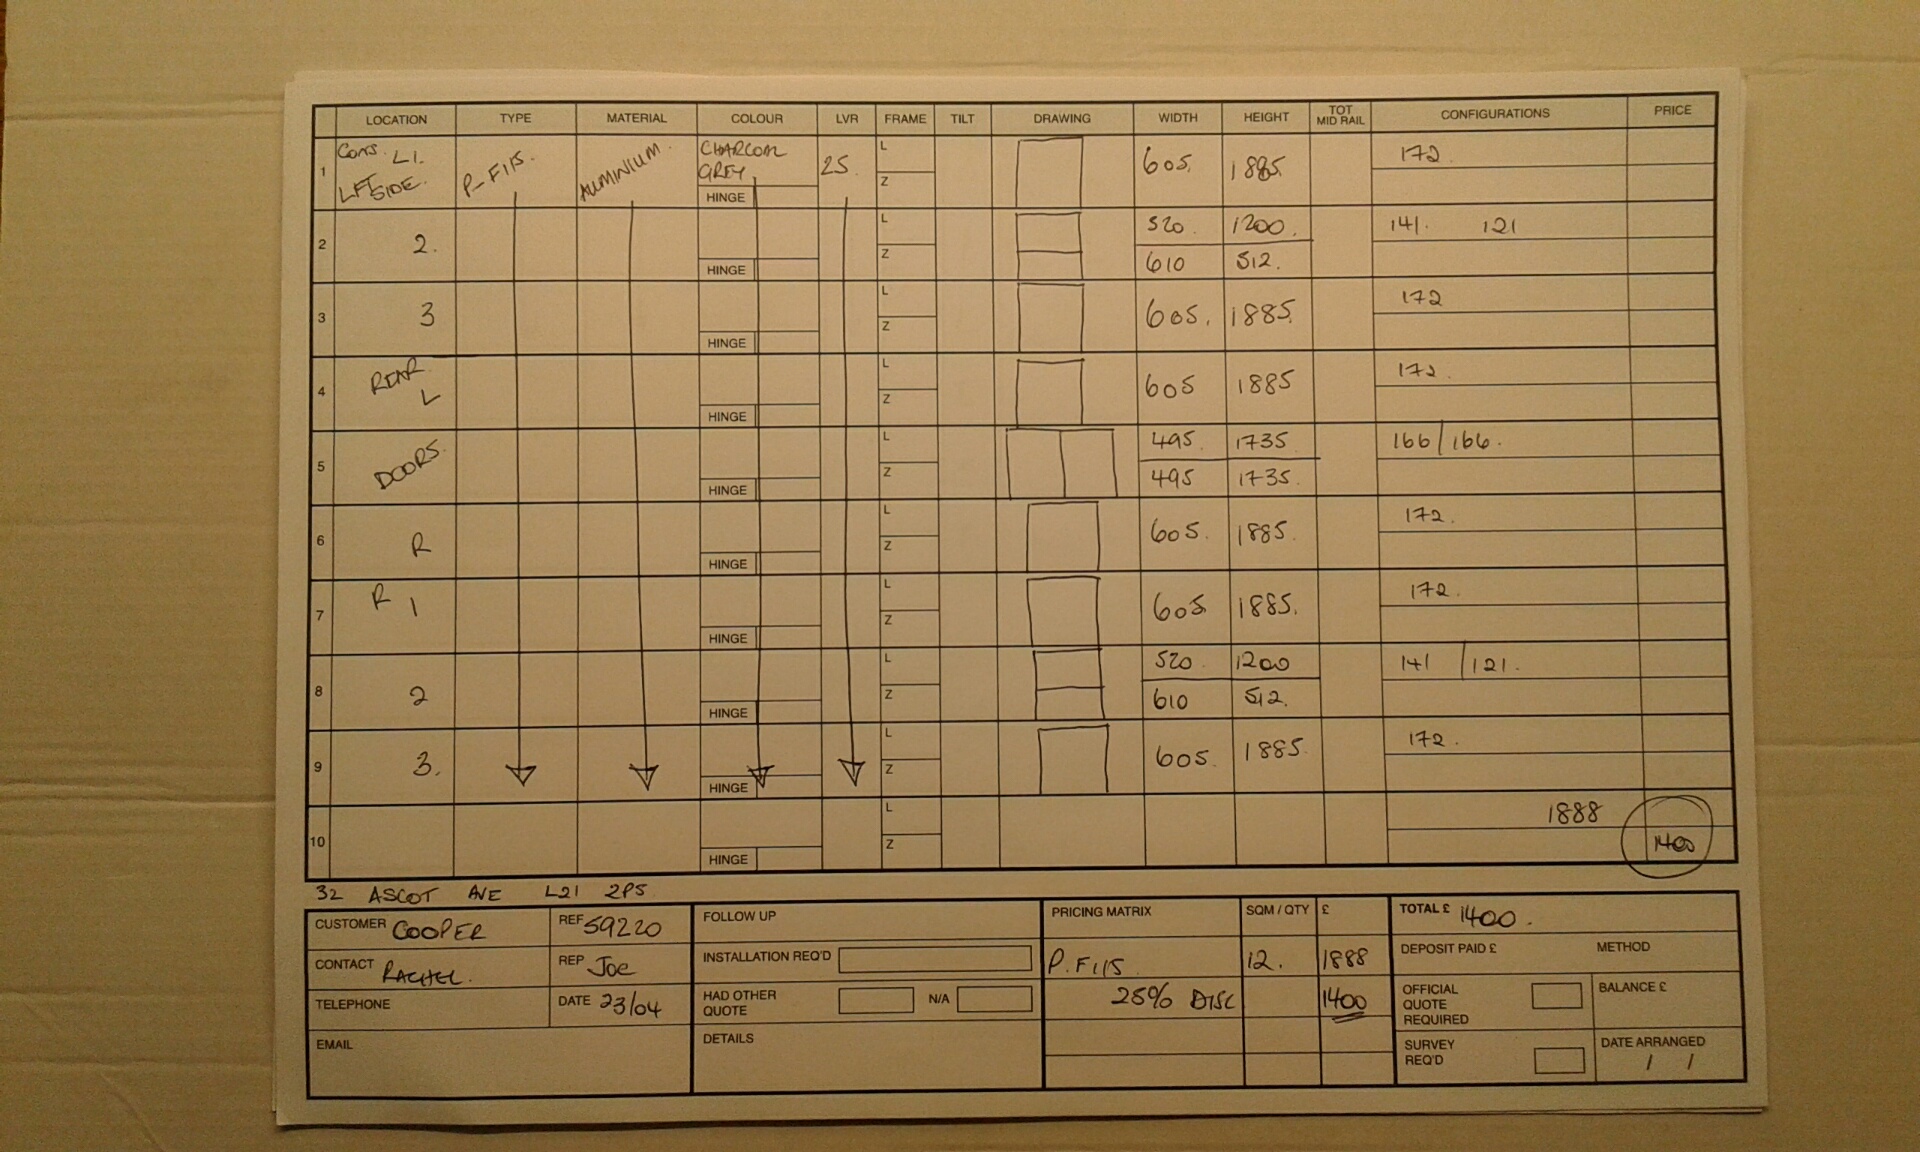 LOCATION TYPE MATERIAL COLOUR LVR FRAME TILT DRAWING WIDTH HEIGHT TOT MID RAIL CONFIGURATIONS PRICE
1 CONS. L1. LFT SIDE. P-FIIS. ALUMINIUM. CHARCOAL GREY HINGE 25. L Z 605. 1885. 172.
2 2. HINGE L Z 520. 1200. 141. 121
610 512.
3 3 HINGE L Z 605. 1885. 172
4 REAR L HINGE L Z 605 1885 172.
5 DOORS. HINGE L Z 495. 1735. 166/166.
495 1735.
6 R HINGE L Z 605. 1885. 172.
7 R 1 HINGE L Z 605 1885. 172.
8 2 HINGE L Z 520. 1200 141 /121.
610 512.
9 3. HINGE L Z 605. 1885. 172.
10 HINGE L Z 1888
1400
32 ASCOT AVE L21 2PS
CUSTOMER COOPER REF 59220
CONTACT RACHEL. REP JOE
TELEPHONE DATE 23/04
EMAIL
FOLLOW UP
INSTALLATION REQ'D
HAD OTHER QUOTE N/A
DETAILS
PRICING MATRIX SQM / QTY £
P. FIIS. 12. 1888
25% DISC 1400
TOTAL £ 1400.
DEPOSIT PAID £ METHOD
OFFICIAL QUOTE REQUIRED BALANCE £
SURVEY REQ'D DATE ARRANGED
/ /